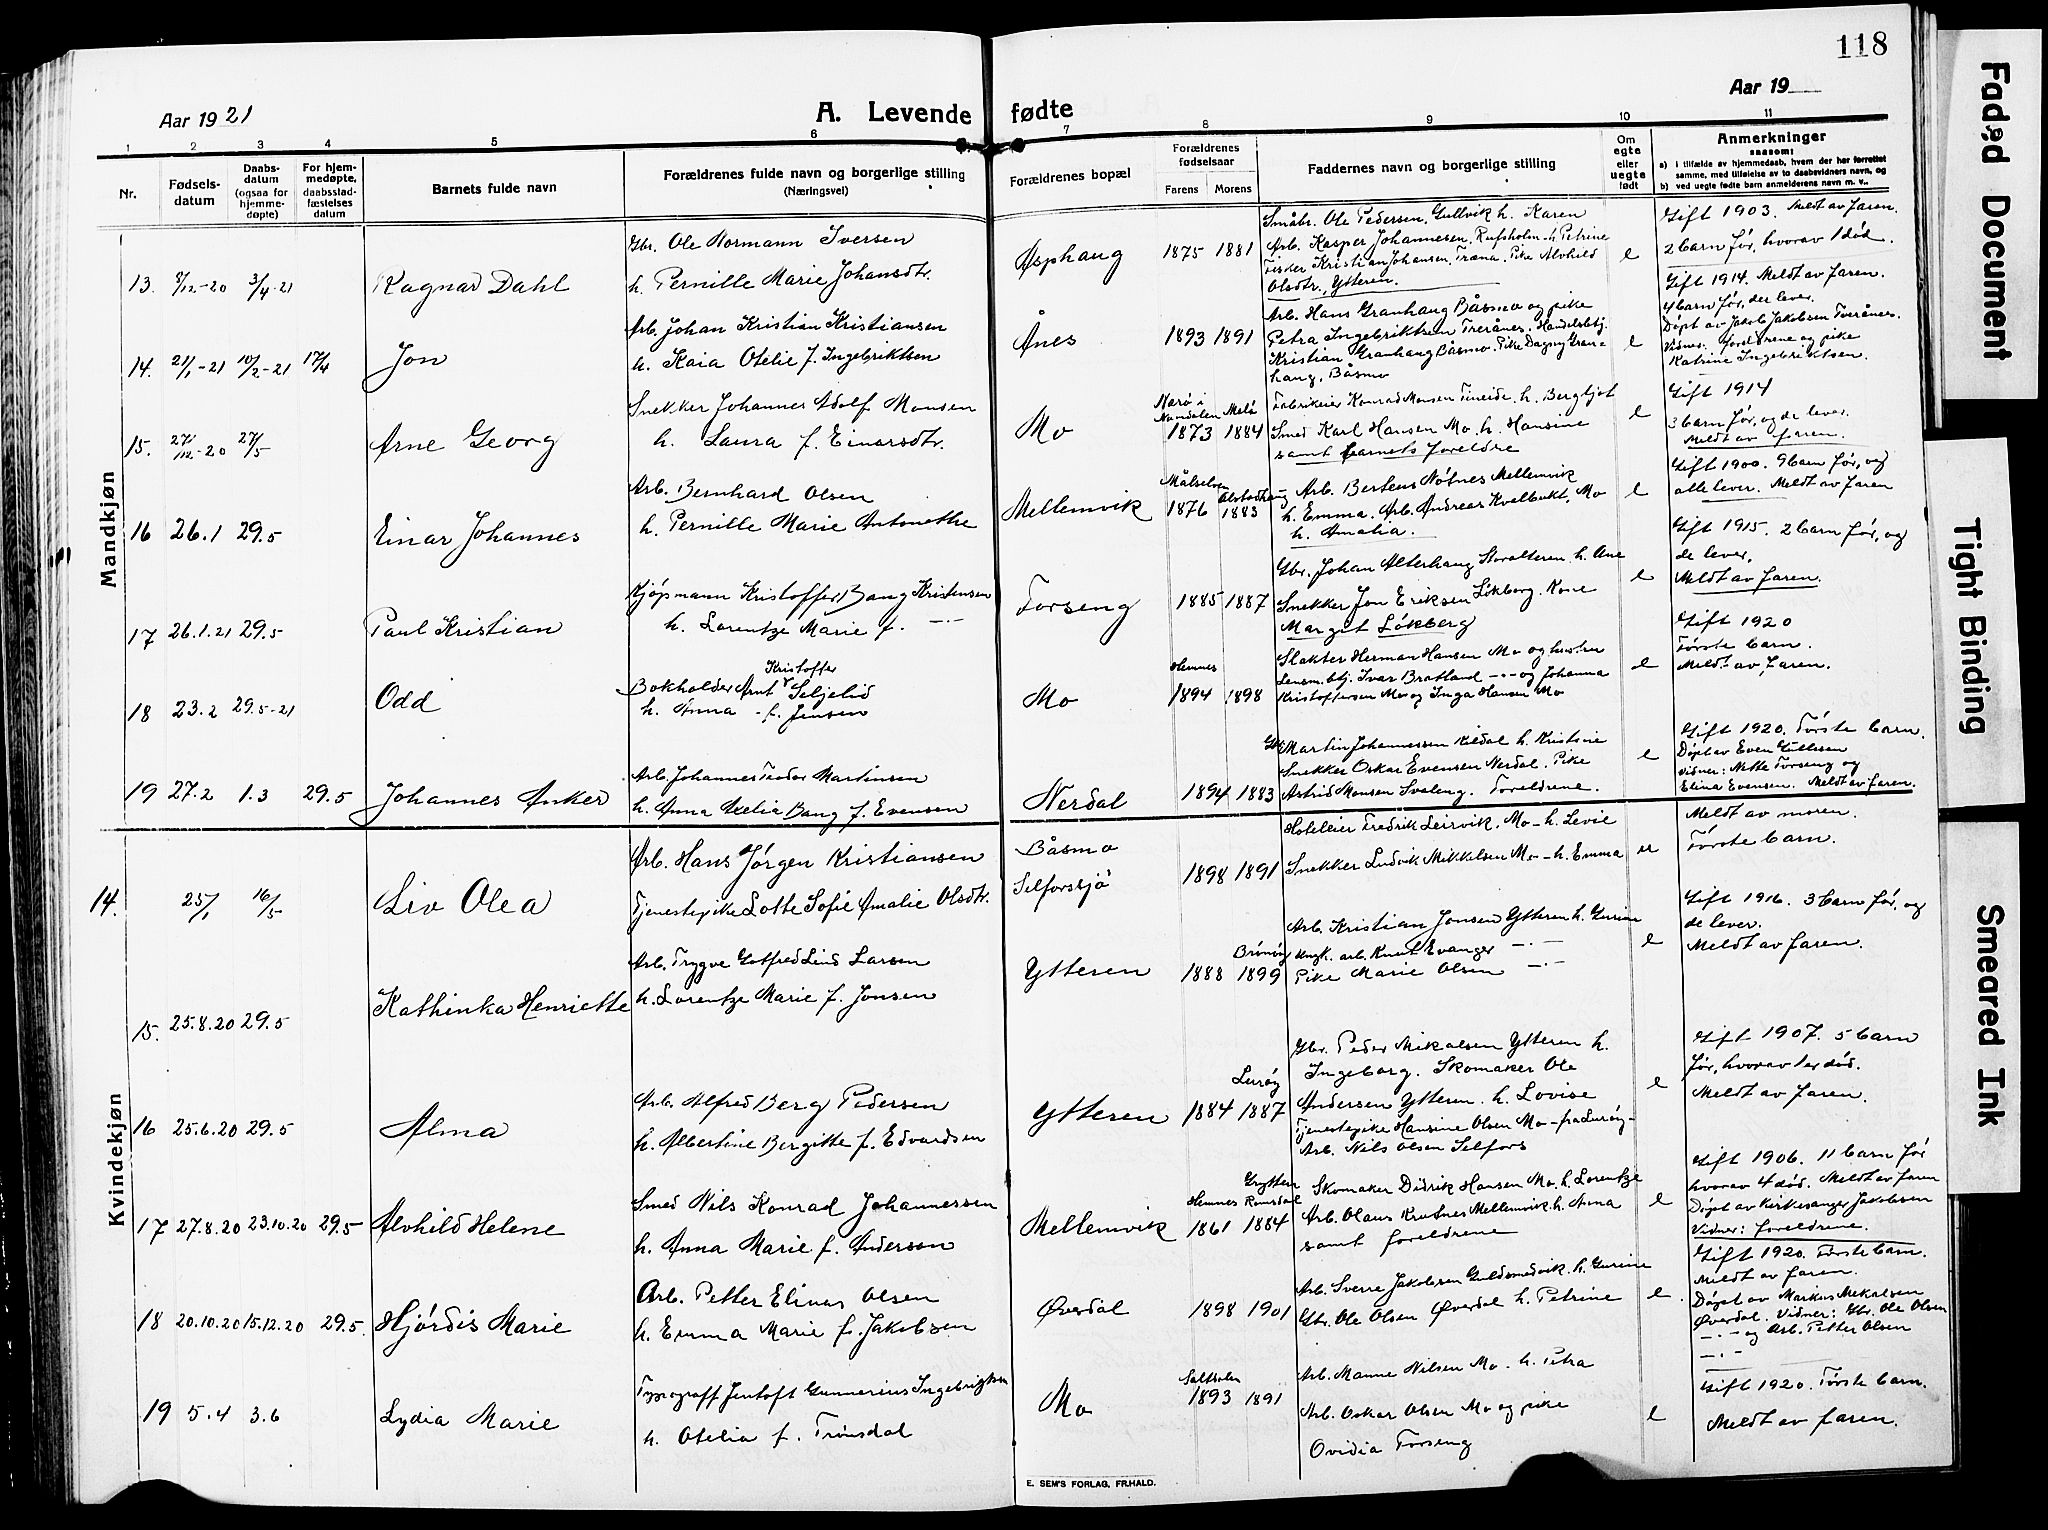 118
Aar 1921
A. Levende fødte
Aar 19
1 2 3 4 5 6 7 8 9 10 11
Nr.
Fødsels-
datum
Daabs-
datum
(ogsaa for
hjemme-
døpte)
For hjem-
medøpte,
daabsstad-
fæstelses
datum
Barnets fulde navn
Forældrenes fulde navn og borgerlige stilling
(Næringsvei)
Forældrenes bopæl
Forældrenes
fødselsaar
Farens Morens
Faddernes navn og borgerlige stilling
Om
egte
eller
uegte
født
Anmerkninger
saasom:
a) i tilfælde av hjemmedaab, hvem der har forrettet
samme, med tilføielse av to daabsvidners navn, og
b) ved uegte fødte barn anmelderens navn m. v..
Mandkjøn
13. 8/12-20 3/4-21
Ragnar Dahl
Gbr. Ole Normann Iversen
h. Pernille Marie Johansdtr.
Asphaug
1875 1881
Småbr. Ole Pedersen, Gullvik h. Karen
Arb. Kasper Johannesen, h. Petrine
Fisker Kristian Johansen, Træna. Pike Alvhild
Olsdtr., Ytteren.
e
Gift 1903. Meldt av faren.
2 barn før, hvorav 1 død.
14. 21/1-21 10/2-21 17/4
Jon
Arb. Johan Kristian Kristiansen
h. Kaia Otelie f. Ingebriktsen
Ånes
1893 1891
Arb. Hans Granhaug Båsmo og pike
Petra Ingebriktsen Trerånes. Handelsbtj.
Kristian Granhaug Båsmo. Pike Dagny Gran-
haug, Båsmo
e
Gift 1914. Meldt av faren.
4 barn før, der lever.
Døpt av Jakob Jakobsen Tverånes.
Vidner: foreldrene og pike
Katrine Ingebriktsen.
15. 27/12-20 27/5
Arne Georg
Snekker Johannes Adolf Monsen
h. Laura f. Einarsdtr.
Mo
Narø i
Namdalen Melø
1873 1884
Fabrikeier Konrad Monsen Tineide. h. Bergljot
Smed Karl Hansen Mo h. Hansine
samt barnets foreldre
e
Gift 1914
3 barn før, og de lever.
Meldt av faren.
16 26.1 29.5
Einar Johannes
Arb. Bernhard Olsen
h. Pernille Marie Antonette
Mellemvik
Målselven Alstadhaug
1876 1883
Arb. Bertens Nøtnes Mellemvik
h. Emma. Arb. Andreas Kvelbukt, Mo
h. Amalia.
e
Gift 1900. 9 barn før, og
alle lever. Meldt av faren
17 26.1.21 29.5
Paul Kristian
Kjøpmann Kristoffer Bang Kristensen
h. Lorentze Marie f. —.—
Forseng
1885 1887
Gbr. Johan Alterhaug Storalteren h. Ane
Snekker Jon Eriksen Løkberg. Kone
Margit Løkberg
e
Gift 1915. 2 barn før, og
de lever,
Meldt av faren.
18 23.2 29.5-21
Odd
Kristoffer
Bokholder Arnt Seljelid
h. Anna f. Jensen
Mo
Hemnes
1894 1898
Slakter Herman Hansen Mo og hustru
Lensm.btj. Ivar Bratland —.— og Johanna
Kristoffersen Mo og Inga Hansen Mo
e
Gift 1920
Første barn.
Meldt av faren.
19 27.2 1.3 29.5
Johannes Anker
Arb. Johannes Teodor Martinsen
h. Anna Bang f. Evensen
Nerdal
1894 1883
Gbr. Martin Johannessen Kildal h. Kristine
Snekker Oskar Evensen Nerdal. Pike
Astrid Monsen Svaleng. Foreldrene.
e
Gift 1920. Første barn.
Døpt av Even Gullesen
Vidner: Nette Forseng og
Elina Evensen. Meldt av faren.
Kvindekjøn
14. 25/1 16/5
Liv Olea
Arb. Hans Jørgen Kristiansen
Tjenestepike Lotte Sofie Amalie Olsdtr.
Båsmo
Selforssjø
1898 1891
Hoteleier Fredrik Leirvik, Mo—h. Levie
Snekker Ludvik Mikkelsen Mo—h. Emma
u
Meldt av moren.
Første barn.
15. 25.8.20 29.5
Kathinka Henriette
Arb. Trygve Gotfred Lind Larsen
h. Lorentze Marie f. Jonsen
Ytteren
Brønøy
1888 1899
Arb. Kristian Jonsen Ytteren h. Gurine
Ungk. arb. Knut Evanger —.—
Pike Marie Olsen —.—
e
Gift 1916. 3 barn før, og
de lever.
Meldt av faren.
16 25.6.20 29.5
Alma
Arb. Alfred Berg Pedersen
h. Albertine Bergitte f. Edvardsen
Ytteren
Lurøy
1884 1887
Gbr. Peder Mikalsen Ytteren h.
Ingeborg. Skomaker Ole
Andersen Ytteren. h. Lovise
Tjenestepike Hansine Olsen Mo—fra Lurøy—
Arb. Nils Olsen Selfors
e
Gift 1907. 5 barn
før, hvorav 1 er død.
Meldt av faren.
17 27.8.20 23.10.20 29.5
Alvhild Helene
Smed Nils Konrad Johannessen
h. Anna Marie f. Andersen
Mellemvik
Hemnes Grytten Romsdal
1861 1884
Skomaker Didrik Hansen Mo. h. Lorentze
Arb. Olaus Krutnes Mellemvik h. Anna
samt foreldrene
e
Gift 1906. 11 barn før
hvorav 4 død. Meldt av faren
Døpt av Kirkesanger Jakobsen
Vidner: foreldrene.
18 20.10.20 15.12.20 29.5.
Hjørdis Marie
Arb. Petter Elinas Olsen
h. Emma Marie f. Jakobsen
Øverdal
1898 1901
Arb. Sverre Jakobsen Guldsmedvik. h. Gurine
Gbr. Ole Olsen Øverdal h. Petrine
e.
Gift 1920. Første barn.
Meldt av faren.
Døpt av Markus Mikalsen
Øverdal. Vidner: Gbr. Ole Olsen
—.— og Arb. Petter Olsen
—.—
19 5.4 3.6
Lydia Marie
Typograff Jentoft Gunnerius Ingebrigtsen
h. Otelia f. Trønsdal
Mo
Saltdalen
1893 1891
Arb. Manne Nilsen Mo. h. Petra
Arb. Oskar Olsen Mo og pike
Ovidia Forseng
e
Gift 1920. Første barn.
Meldt av faren.
E. SEM'S FORLAG, FR.HALD.
Faded Document
Tight Binding
Smeared Ink